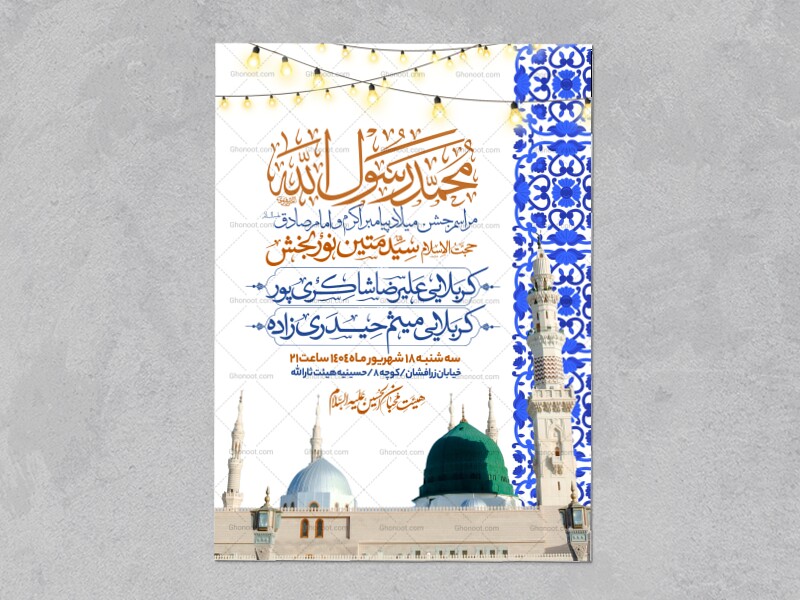 محمد رسول الله
مراسم جشن میلاد پیامبر اکرم و امام صادق
حجت الاسلام سید متین نوربخش
کربلایی علیرضا شاکری پور
کربلایی میثم حیدری زاده
سه شنبه ۱۸ شهریور ماه ۱۴۰۴ ساعت ۲۱
خیابان زرافشان / کوچه ۸ / حسینیه هیئت ثارالله
هیئت محبان الحسین علیه السلام
Ghonoot.com